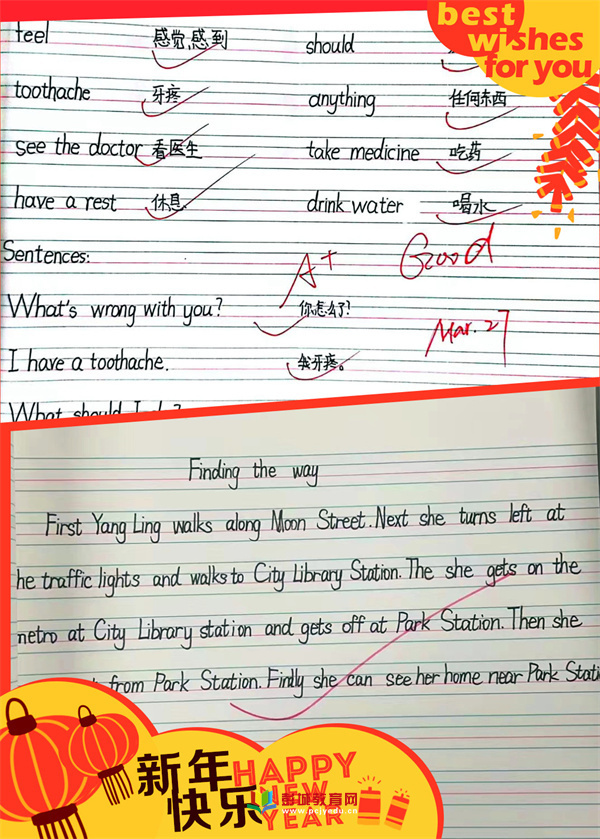 best
wishes
for you
feel 感觉,感到 should
toothache 牙疼 anything 任何东西
see the doctor 看医生 take medicine 吃药
have a rest 休息 drink water 喝水
Sentences: A+ Good
What's wrong with you? 你怎么了?
Mar. 27
I have a toothache. 我牙疼。
What should I
Finding the way
First Yang Ling walks along Moon Street. Next she turns left at
he traffic lights and walks to City Library Station. The she gets on the
metro at City Library station and gets off at Park Station. Then she
from Park Station. Finlly she can see her home near Park Stati
新年
快乐
HAPPY
NEW
YEAR
彭城教育网
www.pcjyedu.cn